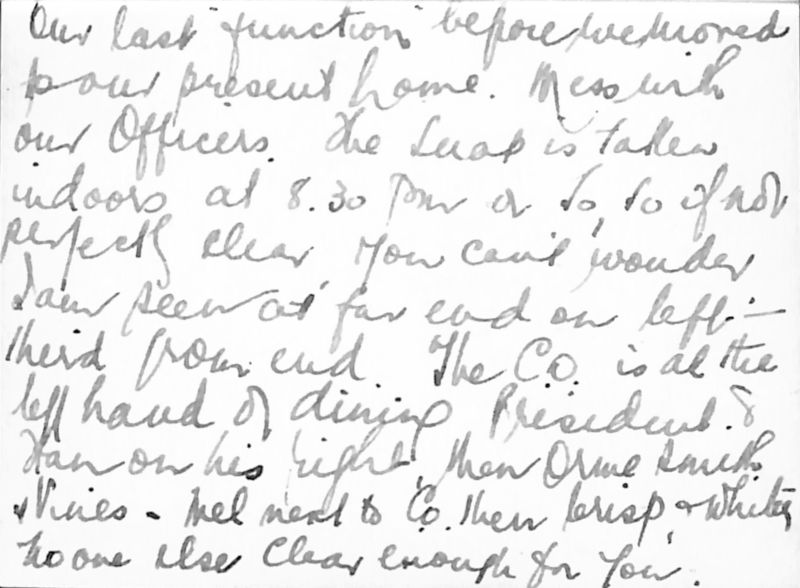 Our last "function" before we moved
to our present home. Mess with
our Officers. The Snap is taken
indoors at 8.30 pm or so, so if not
perfectly clear you can't wonder
I am seen at far end on left –
third from end. The C.O. is at the
left hand of dining President. &
Ham on his right, then Orme Smith
& Vines - Mel next to C.O. then Crisp & Whitey
No one else clear enough for you.